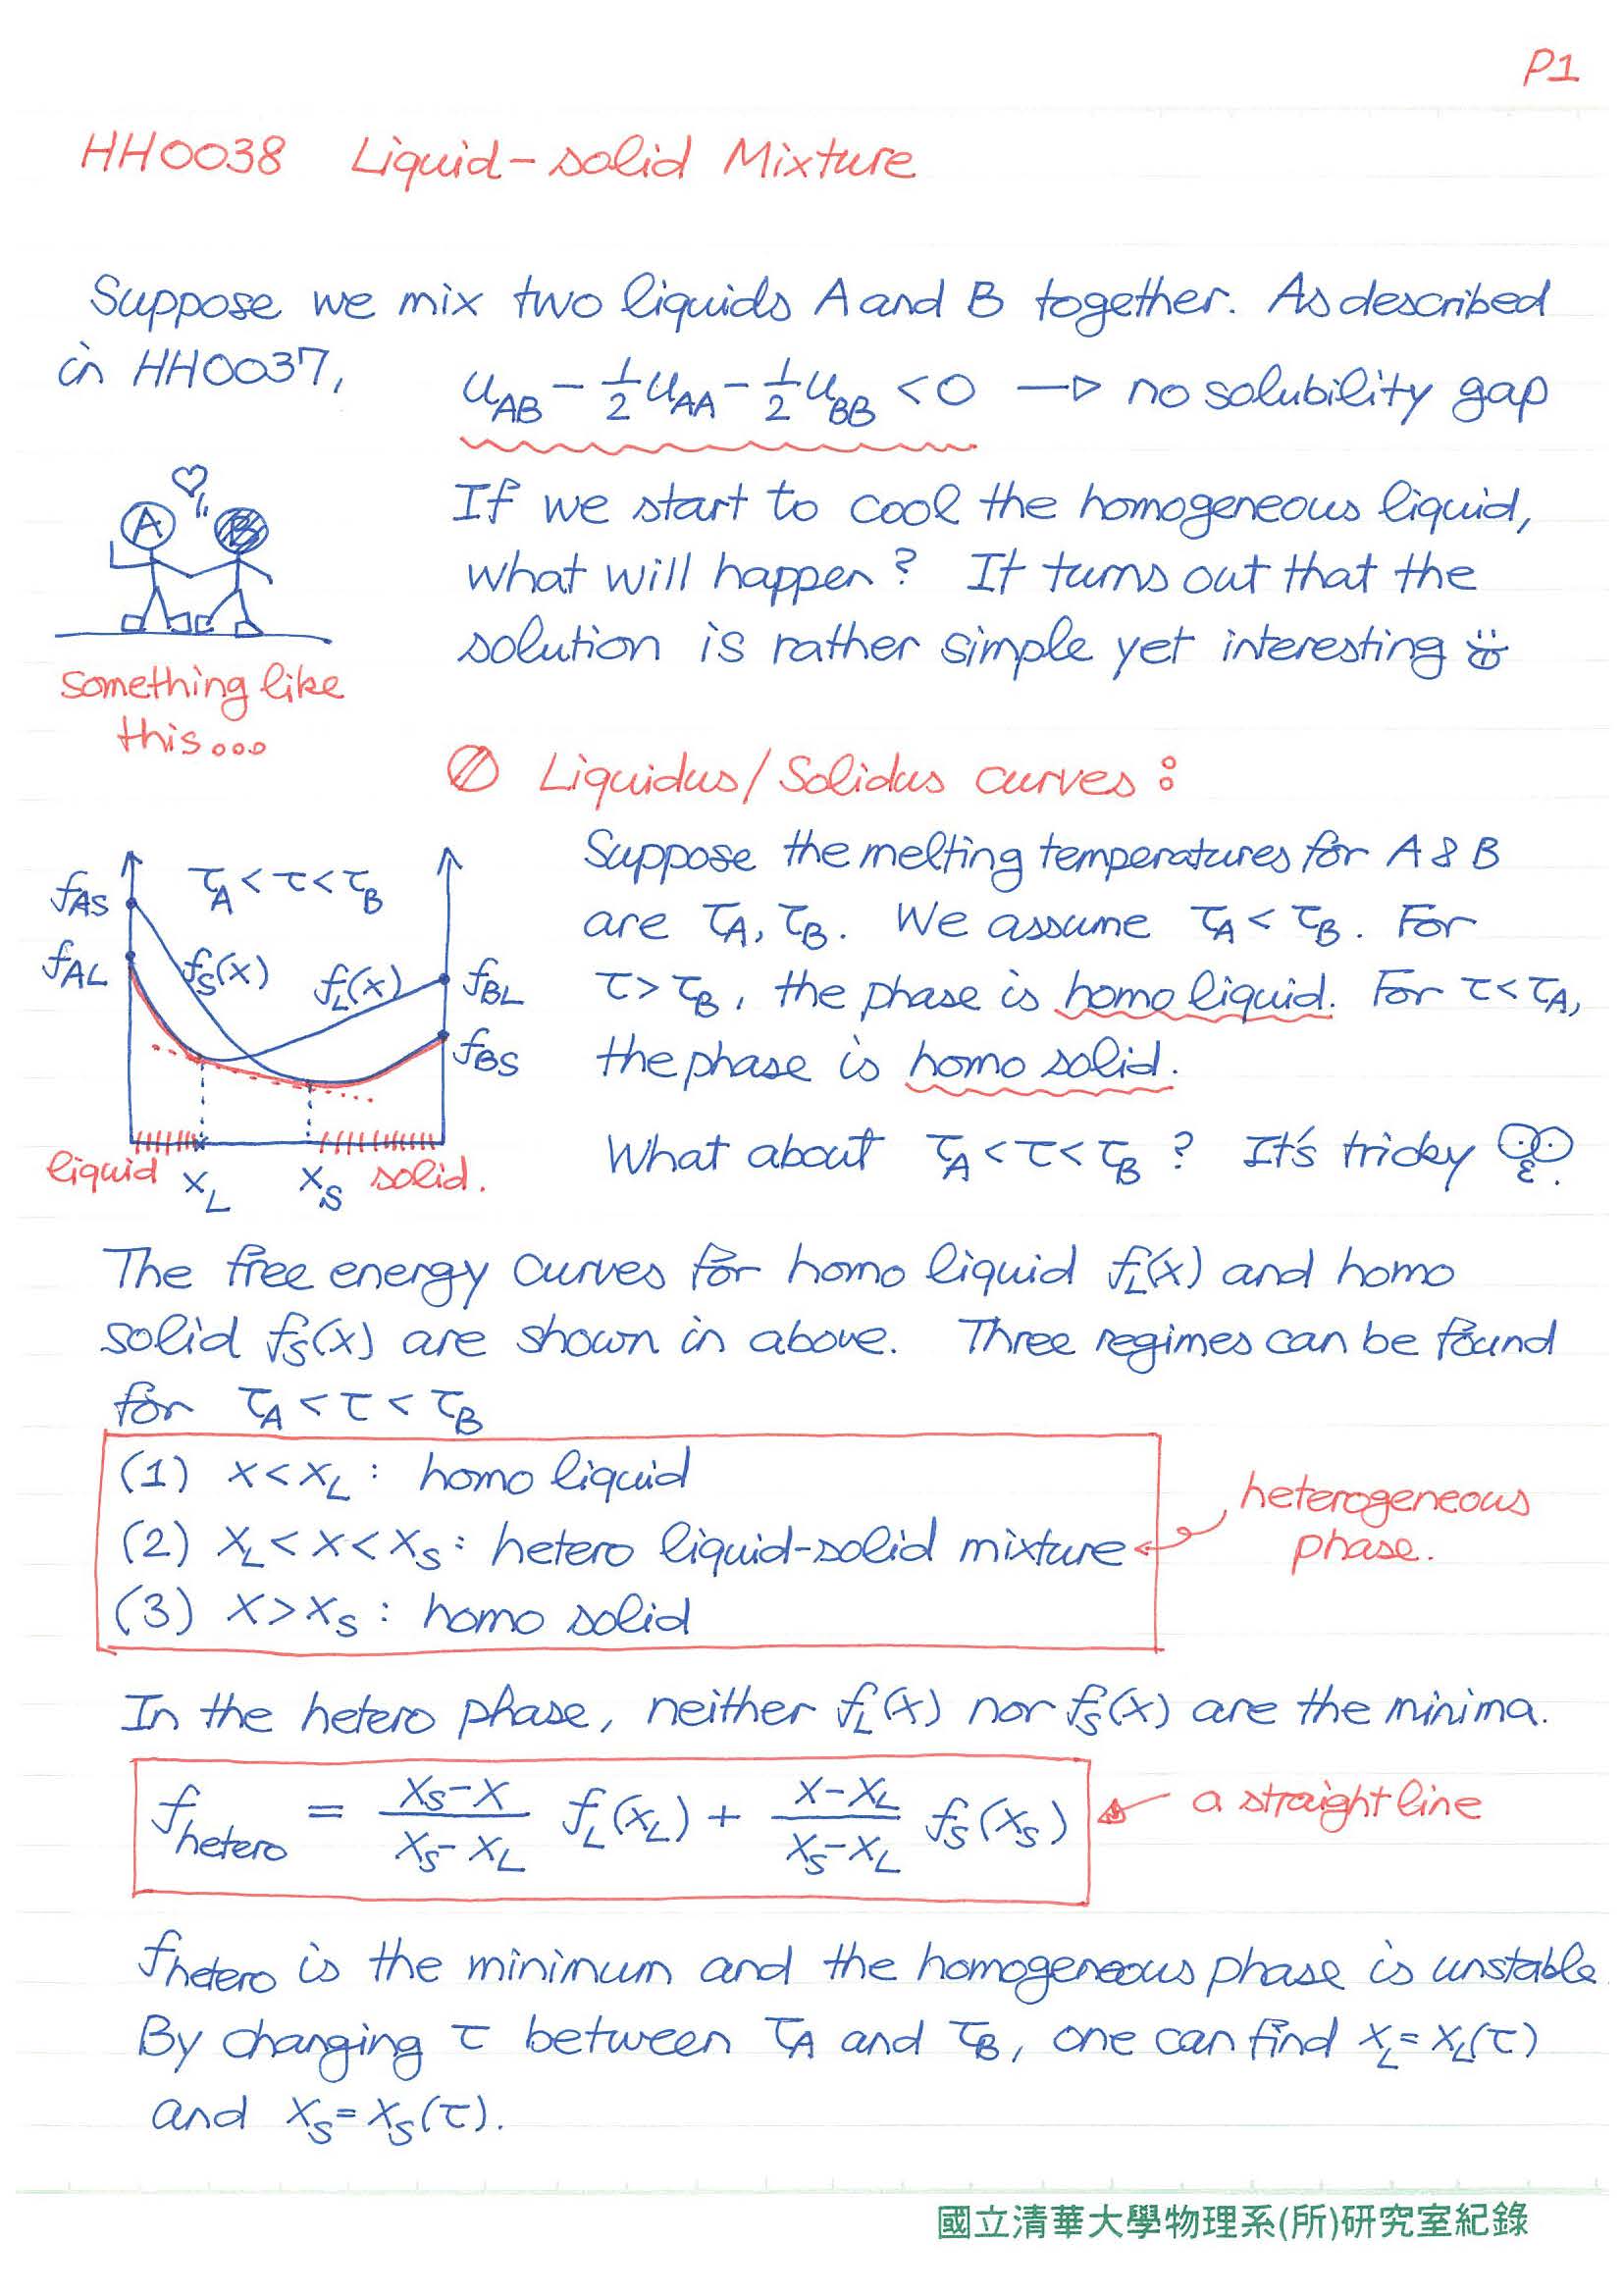 P1
HH0038 Liquid-solid Mixture
Suppose we mix two liquids A and B together. As described
in HH0037,
u_AB - 1/2 u_AA - 1/2 u_BB < 0 → no solubility gap
A B
something like
this...
If we start to cool the homogeneous liquid,
what will happen? It turns out that the
solution is rather simple yet interesting
Liquidus/Solidus curves:
f_AS
f_AL
τ_A < τ < τ_B
f_S(x)
f_L(x)
f_BL
f_BS
liquid x_L x_S solid.
Suppose the melting temperatures for A & B
are τ_A, τ_B. We assume τ_A < τ_B. For
τ > τ_B, the phase is homo liquid. For τ < τ_A,
the phase is homo solid.
What about τ_A < τ < τ_B? It's tricky
The free energy curves for homo liquid f_L(x) and homo
solid f_S(x) are shown in above. Three regimes can be found
for τ_A < τ < τ_B
(1) x < x_L: homo liquid
(2) x_L < x < x_S: hetero liquid-solid mixture
(3) x > x_S: homo solid
heterogeneous
phase.
In the hetero phase, neither f_L(x) nor f_S(x) are the minima.
f_hetero = (x_S - x)/(x_S - x_L) f_L(x_L) + (x - x_L)/(x_S - x_L) f_S(x_S)
a straight line
f_hetero is the minimum and the homogeneous phase is unstable.
By changing τ between τ_A and τ_B, one can find x_L = x_L(τ)
and x_S = x_S(τ).
國立清華大學物理系(所)研究室紀錄